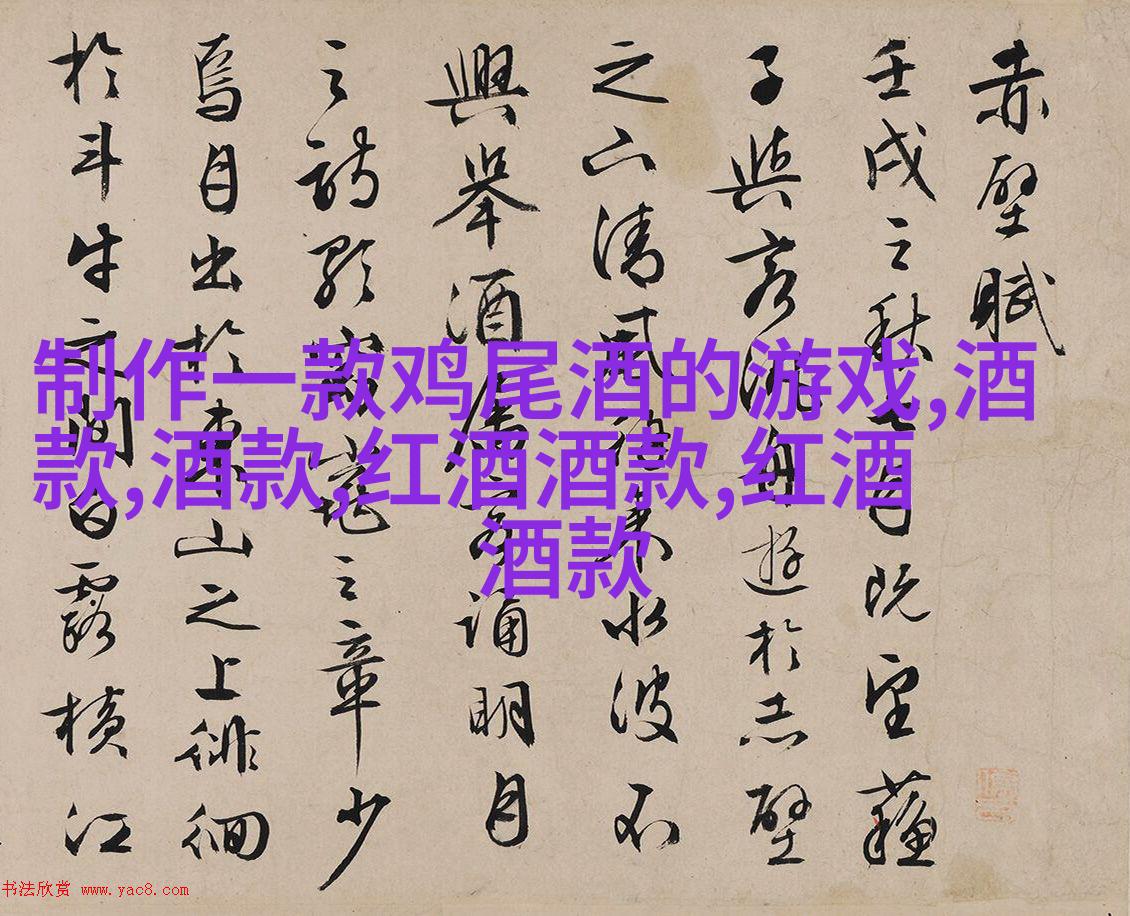 赤壁賦
壬戌之秋七月既望蘇
子與客泛舟遊於赤壁
之下清風徐來水波不
興舉酒屬客誦明月
之詩歌窈窕之章少
焉月出於東山之上徘徊
於斗牛之間白露橫江
制作一款鸡尾酒的游戏,酒
款,酒款,红酒酒款,红酒
酒款
书法欣赏 www.yac8.com